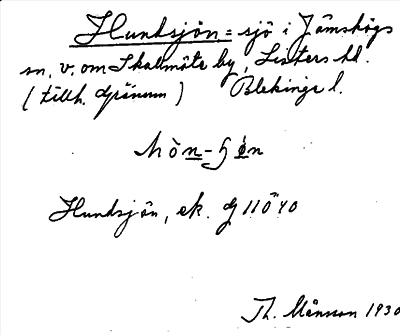 Hundsjön = sjö i Jämshögs
sn, v. om Skallmåla by, Listers hd.
(tillh. Gränum) Blekinge l.
hòn-ʃøn
Hundsjön, ek. G 11Ö40
Th. Månsson 1930